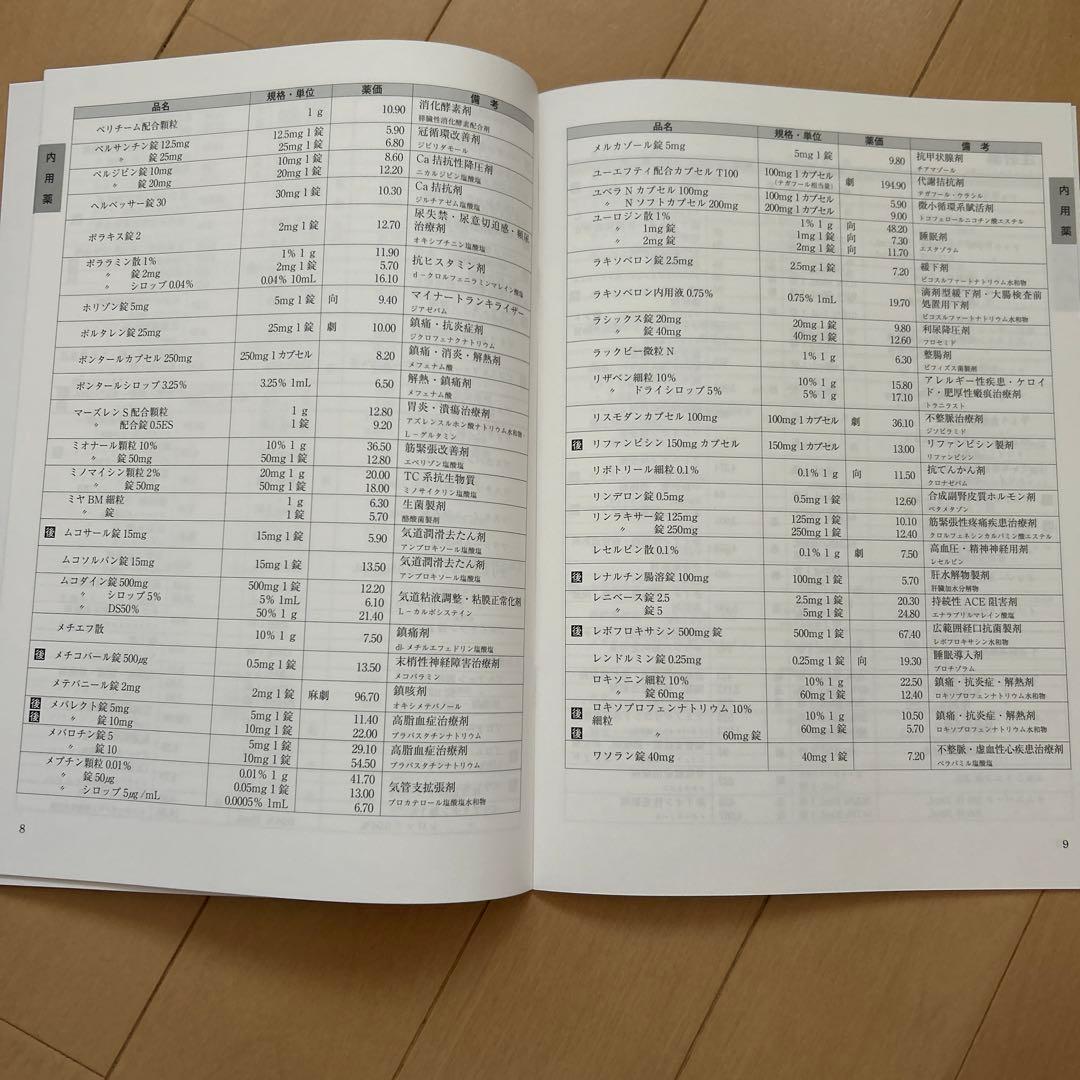 内用薬
品名 規格・単位 薬価 備考
ベリチーム配合顆粒 1g 10.90 消化酵素剤
膵臓性消化酵素配合剤
ペルサンチン錠12.5mg 12.5mg 1錠 5.90 冠循環改善剤
〃 錠25mg 25mg 1錠 6.80 ジピリダモール
ペルジピン錠10mg 10mg 1錠 8.60 Ca拮抗性降圧剤
〃 錠20mg 20mg 1錠 12.20 ニカルジピン塩酸塩
ヘルベッサー錠30 30mg 1錠 10.30 Ca拮抗剤
ジルチアゼム塩酸塩
ポラキス錠2 2mg 1錠 12.70 尿失禁・尿意切迫感・頻尿
治療剤
オキシブチニン塩酸塩
ポララミン散1% 1% 1g 11.90 抗ヒスタミン剤
〃 錠2mg 2mg 1錠 5.70 d-クロルフェニラミンマレイン酸塩
〃 シロップ0.04% 0.04% 10mL 16.10
ホリゾン錠5mg 5mg 1錠 向 9.40 マイナートランキライザー
ジアゼパム
ボルタレン錠25mg 25mg 1錠 劇 10.00 鎮痛・抗炎症剤
ジクロフェナクナトリウム
ポンタールカプセル250mg 250mg 1カプセル 8.20 鎮痛・消炎・解熱剤
メフェナム酸
ポンタールシロップ3.25% 3.25% 1mL 6.50 解熱・鎮痛剤
メフェナム酸
マーズレンS配合顆粒 1g 12.80 胃炎・潰瘍治療剤
〃 配合錠0.5ES 1錠 9.20 アズレンスルホン酸ナトリウム水和物・
L-グルタミン
ミオナール顆粒10% 10% 1g 36.50 筋緊張改善剤
〃 錠50mg 50mg 1錠 12.80 エペリゾン塩酸塩
ミノマイシン顆粒2% 20mg 1g 20.00 TC系抗生物質
〃 錠50mg 50mg 1錠 18.00 ミノサイクリン塩酸塩
ミヤBM細粒 1g 6.30 生菌製剤
〃 錠 1錠 5.70 酪酸菌製剤
後 ムコサール錠15mg 15mg 1錠 5.90 気道潤滑去たん剤
アンブロキソール塩酸塩
ムコソルバン錠15mg 15mg 1錠 13.50 気道潤滑去たん剤
アンブロキソール塩酸塩
ムコダイン錠500mg 500mg 1錠 12.20 気道粘液調整・粘膜正常化剤
〃 シロップ5% 5% 1mL 6.10 L-カルボシステイン
〃 DS50% 50% 1g 21.40
メチエフ散 10% 1g 7.50 鎮痛剤
dl-メチルエフェドリン塩酸塩
後 メチコバール錠500μg 0.5mg 1錠 13.50 末梢性神経障害治療剤
メコバラミン
メテバニール錠2mg 2mg 1錠 麻劇 96.70 鎮咳剤
オキシメテバノール
後 メバレクト錠5mg 5mg 1錠 11.40 高脂血症治療剤
後 〃 錠10mg 10mg 1錠 22.00 プラバスタチンナトリウム
メバロチン錠5 5mg 1錠 29.10 高脂血症治療剤
〃 錠10 10mg 1錠 54.50 プラバスタチンナトリウム
メプチン顆粒0.01% 0.01% 1g 41.70 気管支拡張剤
〃 錠50μg 0.05mg 1錠 13.00 プロカテロール塩酸塩水和物
〃 シロップ5μg/mL 0.0005% 1mL 6.70
8
内用薬
品名 規格・単位 薬価 備考
メルカゾール錠5mg 5mg 1錠 9.80 抗甲状腺剤
チアマゾール
ユーエフティ配合カプセルT100 100mg 1カプセル 劇 194.90 代謝拮抗剤
(テガフール相当量) テガフール・ウラシル
ユベラNカプセル100mg 100mg 1カプセル 5.90 微小循環系賦活剤
〃 Nソフトカプセル200mg 200mg 1カプセル 9.00 トコフェロールニコチン酸エステル
ユーロジン散1% 1% 1g 向 48.20 睡眠剤
〃 1mg錠 1mg 1錠 向 7.30 エスタゾラム
〃 2mg錠 2mg 1錠 向 11.70
ラキソベロン錠2.5mg 2.5mg 1錠 7.20 緩下剤
ピコスルファートナトリウム水和物
ラキソベロン内用液0.75% 0.75% 1mL 19.70 滴剤型緩下剤・大腸検査前
処置用下剤
ピコスルファートナトリウム水和物
ラシックス錠20mg 20mg 1錠 9.80 利尿降圧剤
〃 錠40mg 40mg 1錠 12.60 フロセミド
ラックビー微粒N 1% 1g 6.30 整腸剤
ビフィズス菌製剤
リザベン細粒10% 10% 1g 15.80 アレルギー性疾患・ケロイ
〃 ドライシロップ5% 5% 1g 17.10 ド・肥厚性瘢痕治療剤
トラニラスト
リスモダンカプセル100mg 100mg 1カプセル 劇 36.10 不整脈治療剤
ジソピラミド
後 リファンピシン150mgカプセル 150mg 1カプセル 13.00 リファンピシン製剤
リファンピシン
リボトリール細粒0.1% 0.1% 1g 向 11.50 抗てんかん剤
クロナゼパム
リンデロン錠0.5mg 0.5mg 1錠 12.60 合成副腎皮質ホルモン剤
ベタメタゾン
リンラキサー錠125mg 125mg 1錠 10.10 筋緊張性疼痛疾患治療剤
〃 錠250mg 250mg 1錠 12.40 クロルフェネシンカルバミン酸エステル
レセルピン散0.1% 0.1% 1g 劇 7.50 高血圧・精神神経用剤
レセルピン
後 レナルチン腸溶錠100mg 100mg 1錠 5.70 肝水解物製剤
肝臓加水分解物
レニベース錠2.5 2.5mg 1錠 20.30 持続性ACE阻害剤
〃 錠5 5mg 1錠 24.80 エナラプリルマレイン酸塩
後 レボフロキサシン500mg錠 500mg 1錠 67.40 広範囲経口抗菌製剤
レボフロキサシン水和物
レンドルミン錠0.25mg 0.25mg 1錠 向 19.30 睡眠導入剤
ブロチゾラム
ロキソニン細粒10% 10% 1g 22.50 鎮痛・抗炎症・解熱剤
〃 錠60mg 60mg 1錠 12.40 ロキソプロフェンナトリウム水和物
後 ロキソプロフェンナトリウム10%
細粒 10% 1g 10.50 鎮痛・抗炎症・解熱剤
後 〃 60mg錠 60mg 1錠 5.70 ロキソプロフェンナトリウム水和物
ワソラン錠40mg 40mg 1錠 7.20 不整脈・虚血性心疾患治療剤
ベラパミル塩酸塩
9